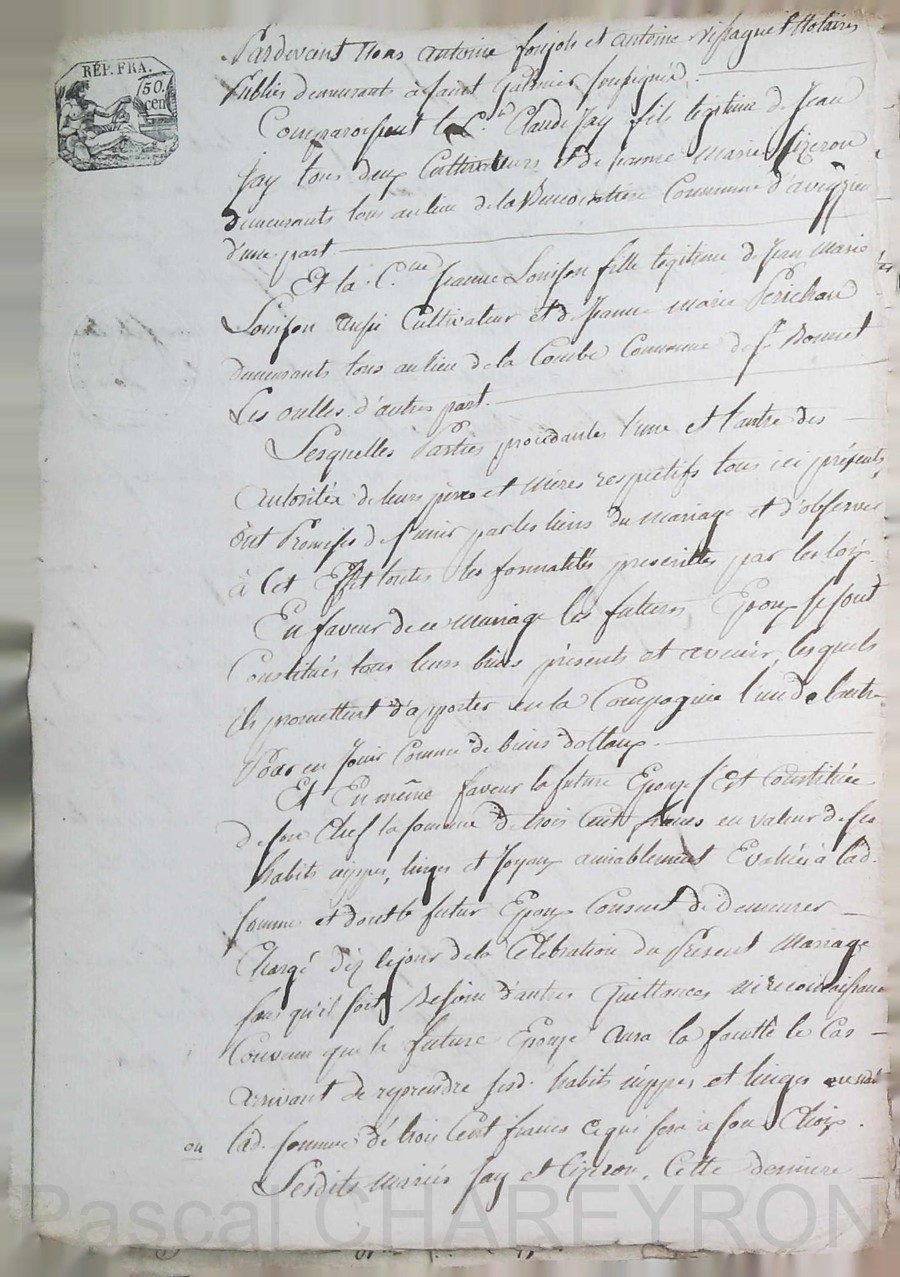 RÉP. FRA.
50.
cen
Pardevant Nous antoine et antoine Notaires
Publics demeurants a saint galmier soussignés.
Comparoissent le C.en Claude Jay fils legitime de Jean
Jay tous deux Cultivateurs et de femme Marie Lizeron
demeurants tous au lieu de la Commune d'aveizieu
d'une part
Et la C.nne Jeanne Louison fille legitime de Jean Marie
Louison aussi Cultivateur et de Jeanne marie Perichon
demeurants tous au lieu de la Combe Commune de st Bonnet
Les oulles d'autre part.
Lesquelles Parties procedantes l'une et l'autre des
autorités de leurs peres et meres respectifs tous ici présents
ont Promises de s'unir par les liens du mariage et d'observer
à Cet Effet toutes les formalités prescrittes par les loix
En faveur de ce mariage les futurs Epoux se sont
Constitués tous leurs biens présents et avenir, lesquels
ils promettent d'apporter en la Compagnie l'un de l'autre
Pour en Jouir Comme de biens dottaux.
Et En même faveur la future Epouse s'Est Constituée
de son Chef la somme de trois Cent francs en valeur de ses
habits nippes, linges et Joyaux amiablement Evalués à lad.
somme et dont le futur Epoux Consent de demeurer
Chargé dez le jour de la Célébration du Présent Mariage
sans qu'il soit Besoin d'autres Quittances ni reconaissance
Convenu que la future Epouse aura la faculté le Cas
arrivant de reprendre sesd. habits nippes et linges
ou
lad. somme de trois Cent francs ce qui sera a son Choix.
Lesdits mariés Jay et Lizeron, Cette derniere
Pascal CHAREYRON